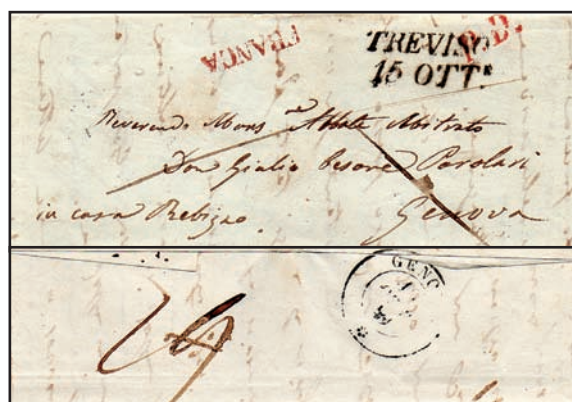 FRANCA
P.D.
TREVISO
15 OTT.e
Reverendo Mons.r Abate Mitrato
Don Giulio Cesare Parolari
in casa Rebizzo.
Genova
GENO